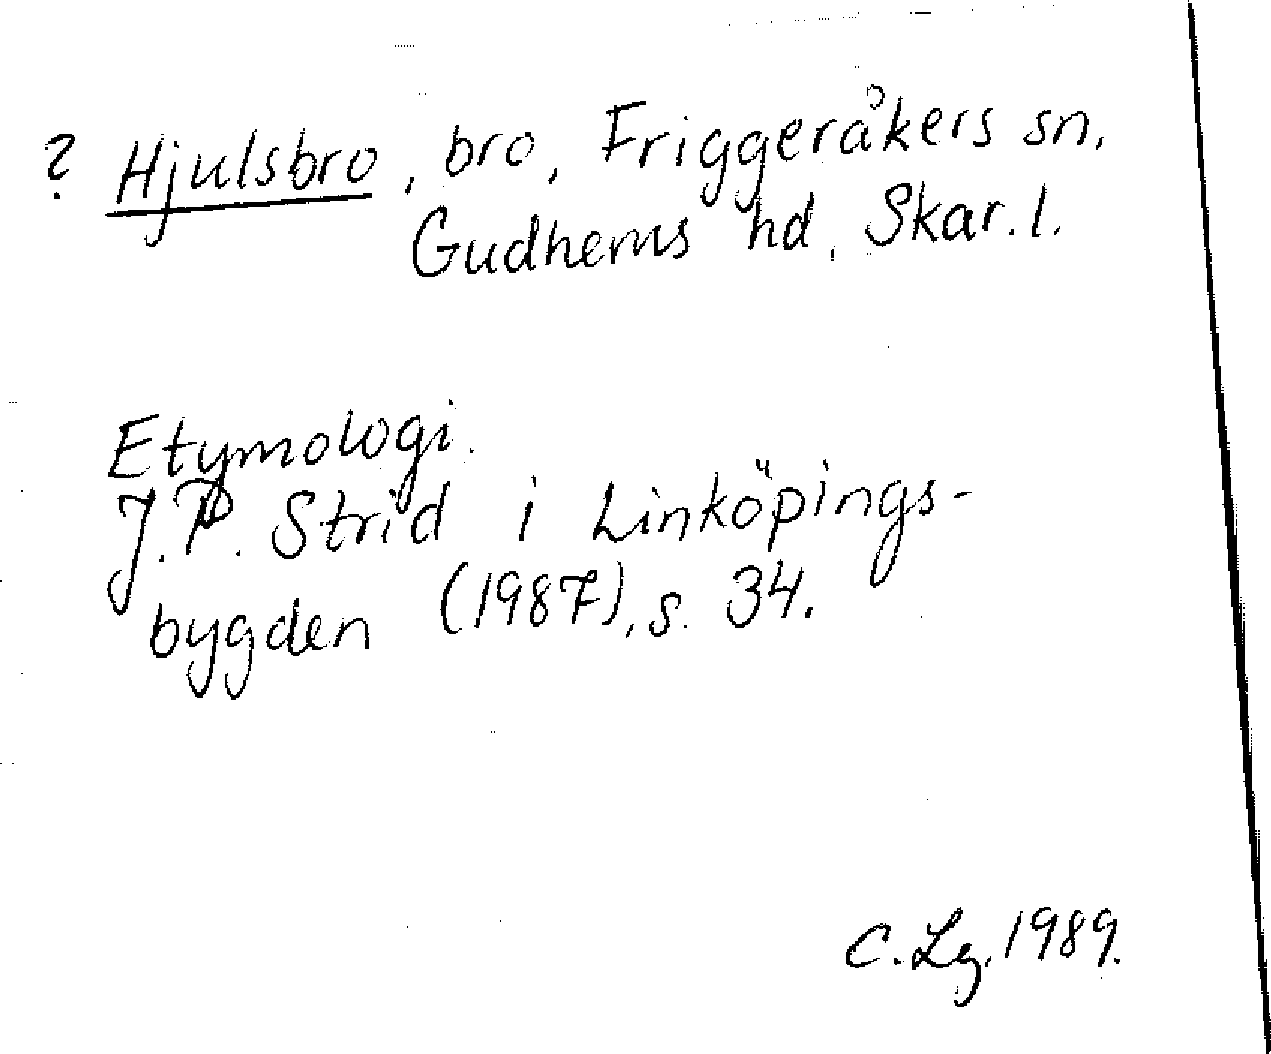 ? Hjulsbro, bro, Friggeråkers sn,
Gudhems hd, Skar. l.
Etymologi.
J.P. Strid i Linköpings-
bygden (1987), s. 34.
C. Lg. 1989.